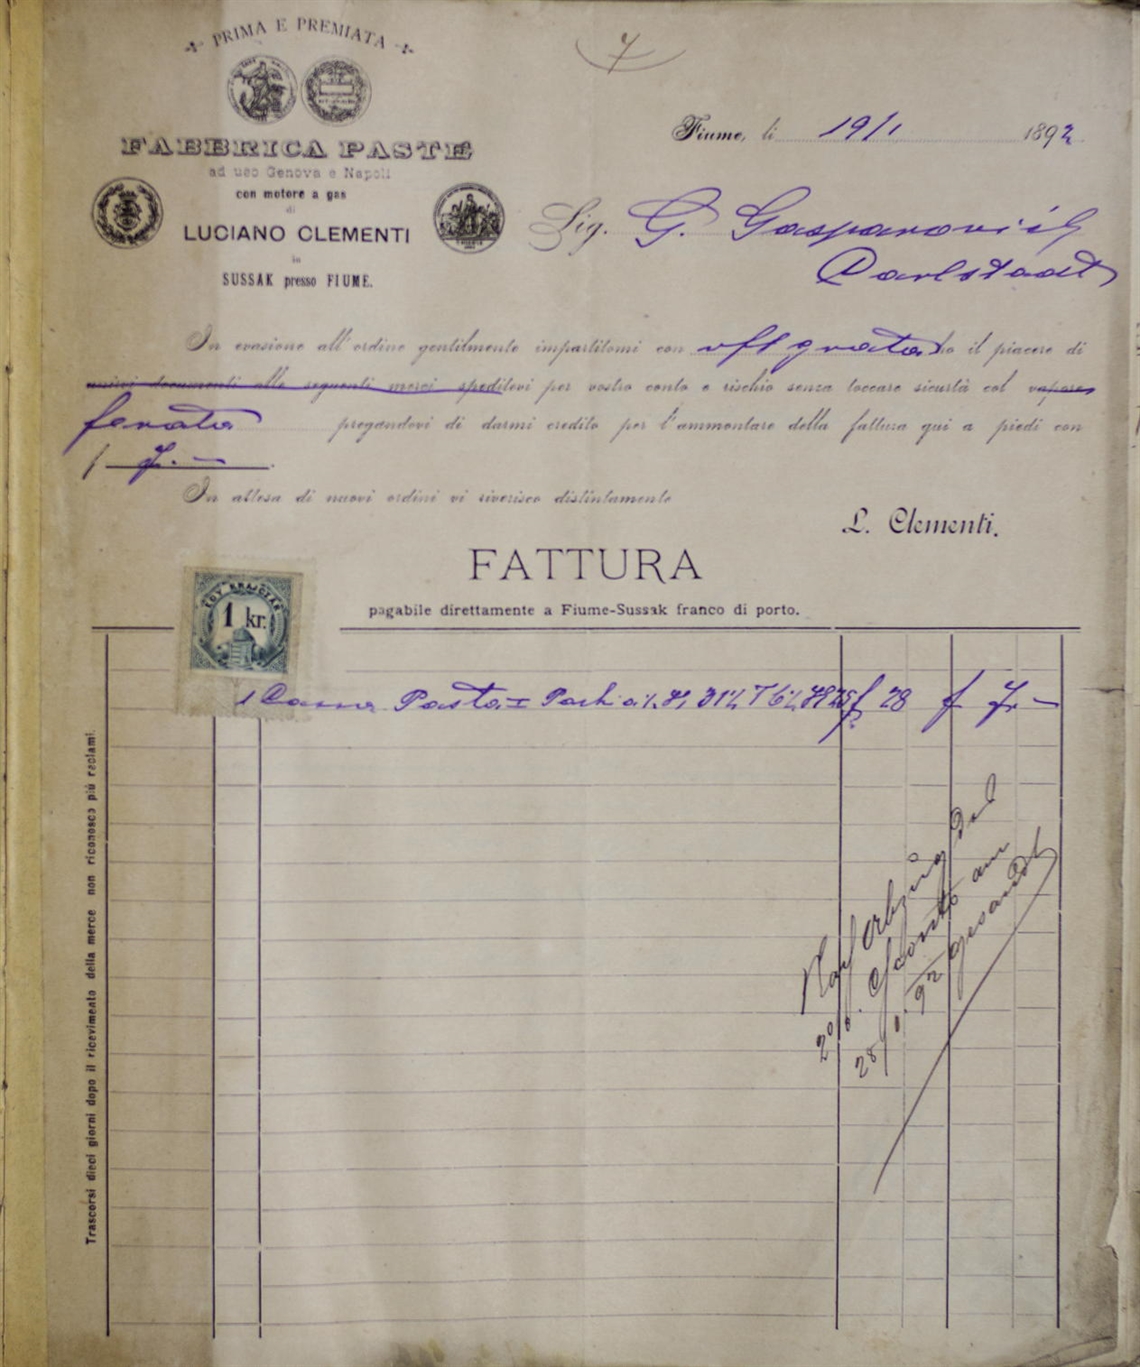 7
PRIMA E PREMIATA
FABBRICA PASTE
ad uso Genova e Napoli
con motore a gas
di
LUCIANO CLEMENTI
in
SUSSAK presso FIUME.
Fiume, li 19/1 1892
Sig. G. Gasparovich
Carlstadt
In evasione all'ordine gentilmente impartitomi con grata ho il piacere di
unirvi documenti alle seguenti merci speditevi per vostro conto e rischio senza toccare sicurtà col vapore
ferata pregandovi di darmi credito per l'ammontare della fattura qui a piedi con
f 7.—
In attesa di nuovi ordini vi riverisco distintamente
L. Clementi.
FATTURA
pagabile direttamente a Fiume-Sussak franco di porto.
EGY KRAJCZÁR
1 kr.
1 Cassa Pasta I 31½ T 6½ 25 f 28 f 7.—
Trascorsi dieci giorni dopo il ricevimento della merce non riconosco più reclami.
2% Sconto am
28/1. 92 gesandt